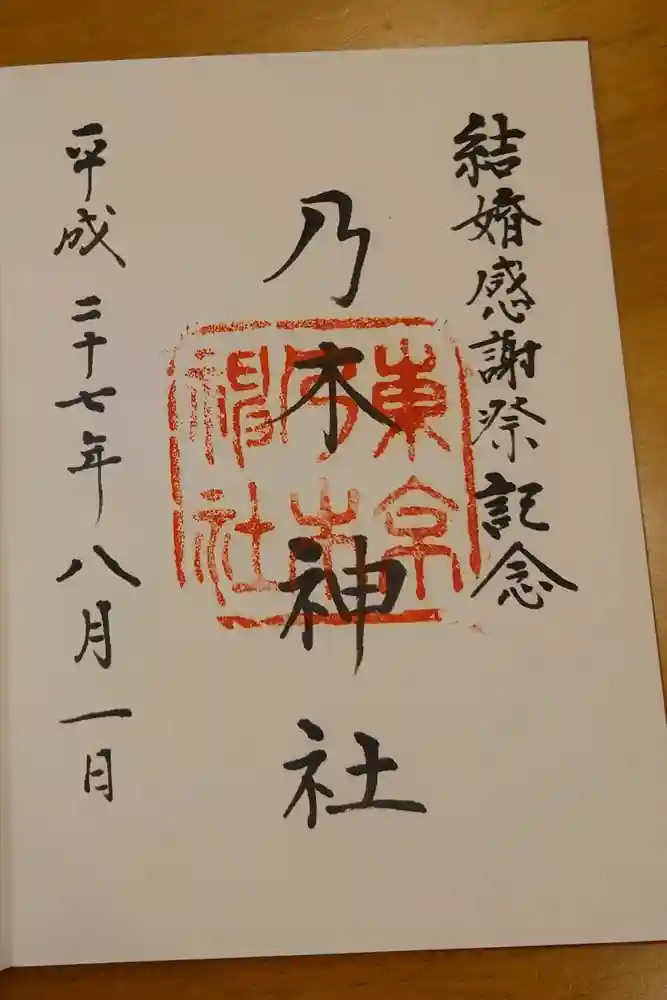 結婚感謝祭記念
乃木神社
東京
乃木
神社
平成二十七年八月一日